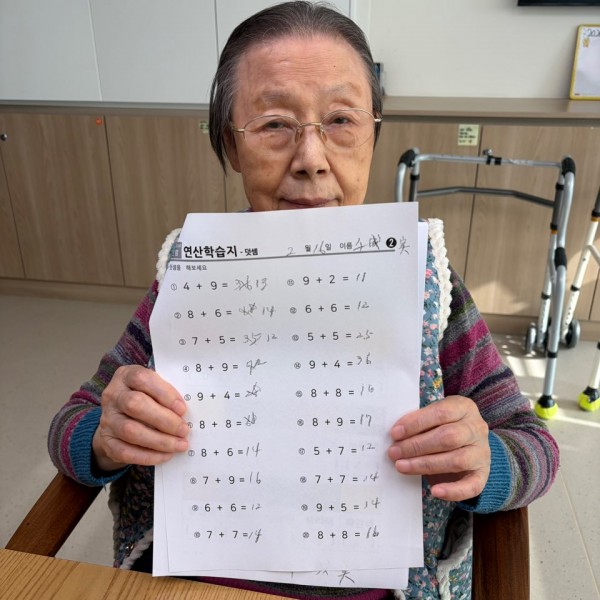 연산학습지 - 덧셈 2 월 16 일 이름 ❷
해보세요
① 4 + 9 = 13
② 8 + 6 = 14
③ 7 + 5 = 35 12
④ 8 + 9 =
⑤ 9 + 4 =
⑥ 8 + 8 =
⑦ 8 + 6 = 14
⑧ 7 + 9 = 16
⑨ 6 + 6 = 12
⑩ 7 + 7 = 14
⑪ 9 + 2 = 11
⑫ 6 + 6 = 12
⑬ 5 + 5 = 25
⑭ 9 + 4 = 36
⑮ 8 + 8 = 16
⑯ 8 + 9 = 17
⑰ 5 + 7 = 12
⑱ 7 + 7 = 14
⑲ 9 + 5 = 14
⑳ 8 + 8 =